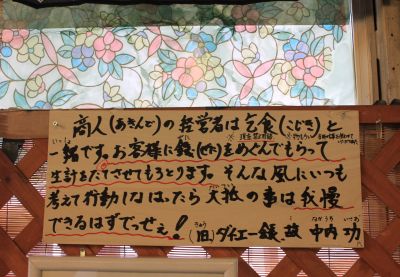 商人(あきんど)の経営者は乞食(こじき)と
一緒です。お客様に銭(ぜに)をめぐんでもらって
生計をたてさせてもろとります。そんな風にいつも
考えて行動しなはったら大抵の事は我慢
できるはずでっせぇ!(旧)ダイエー 中内 功
きゅう
なかうち いさお